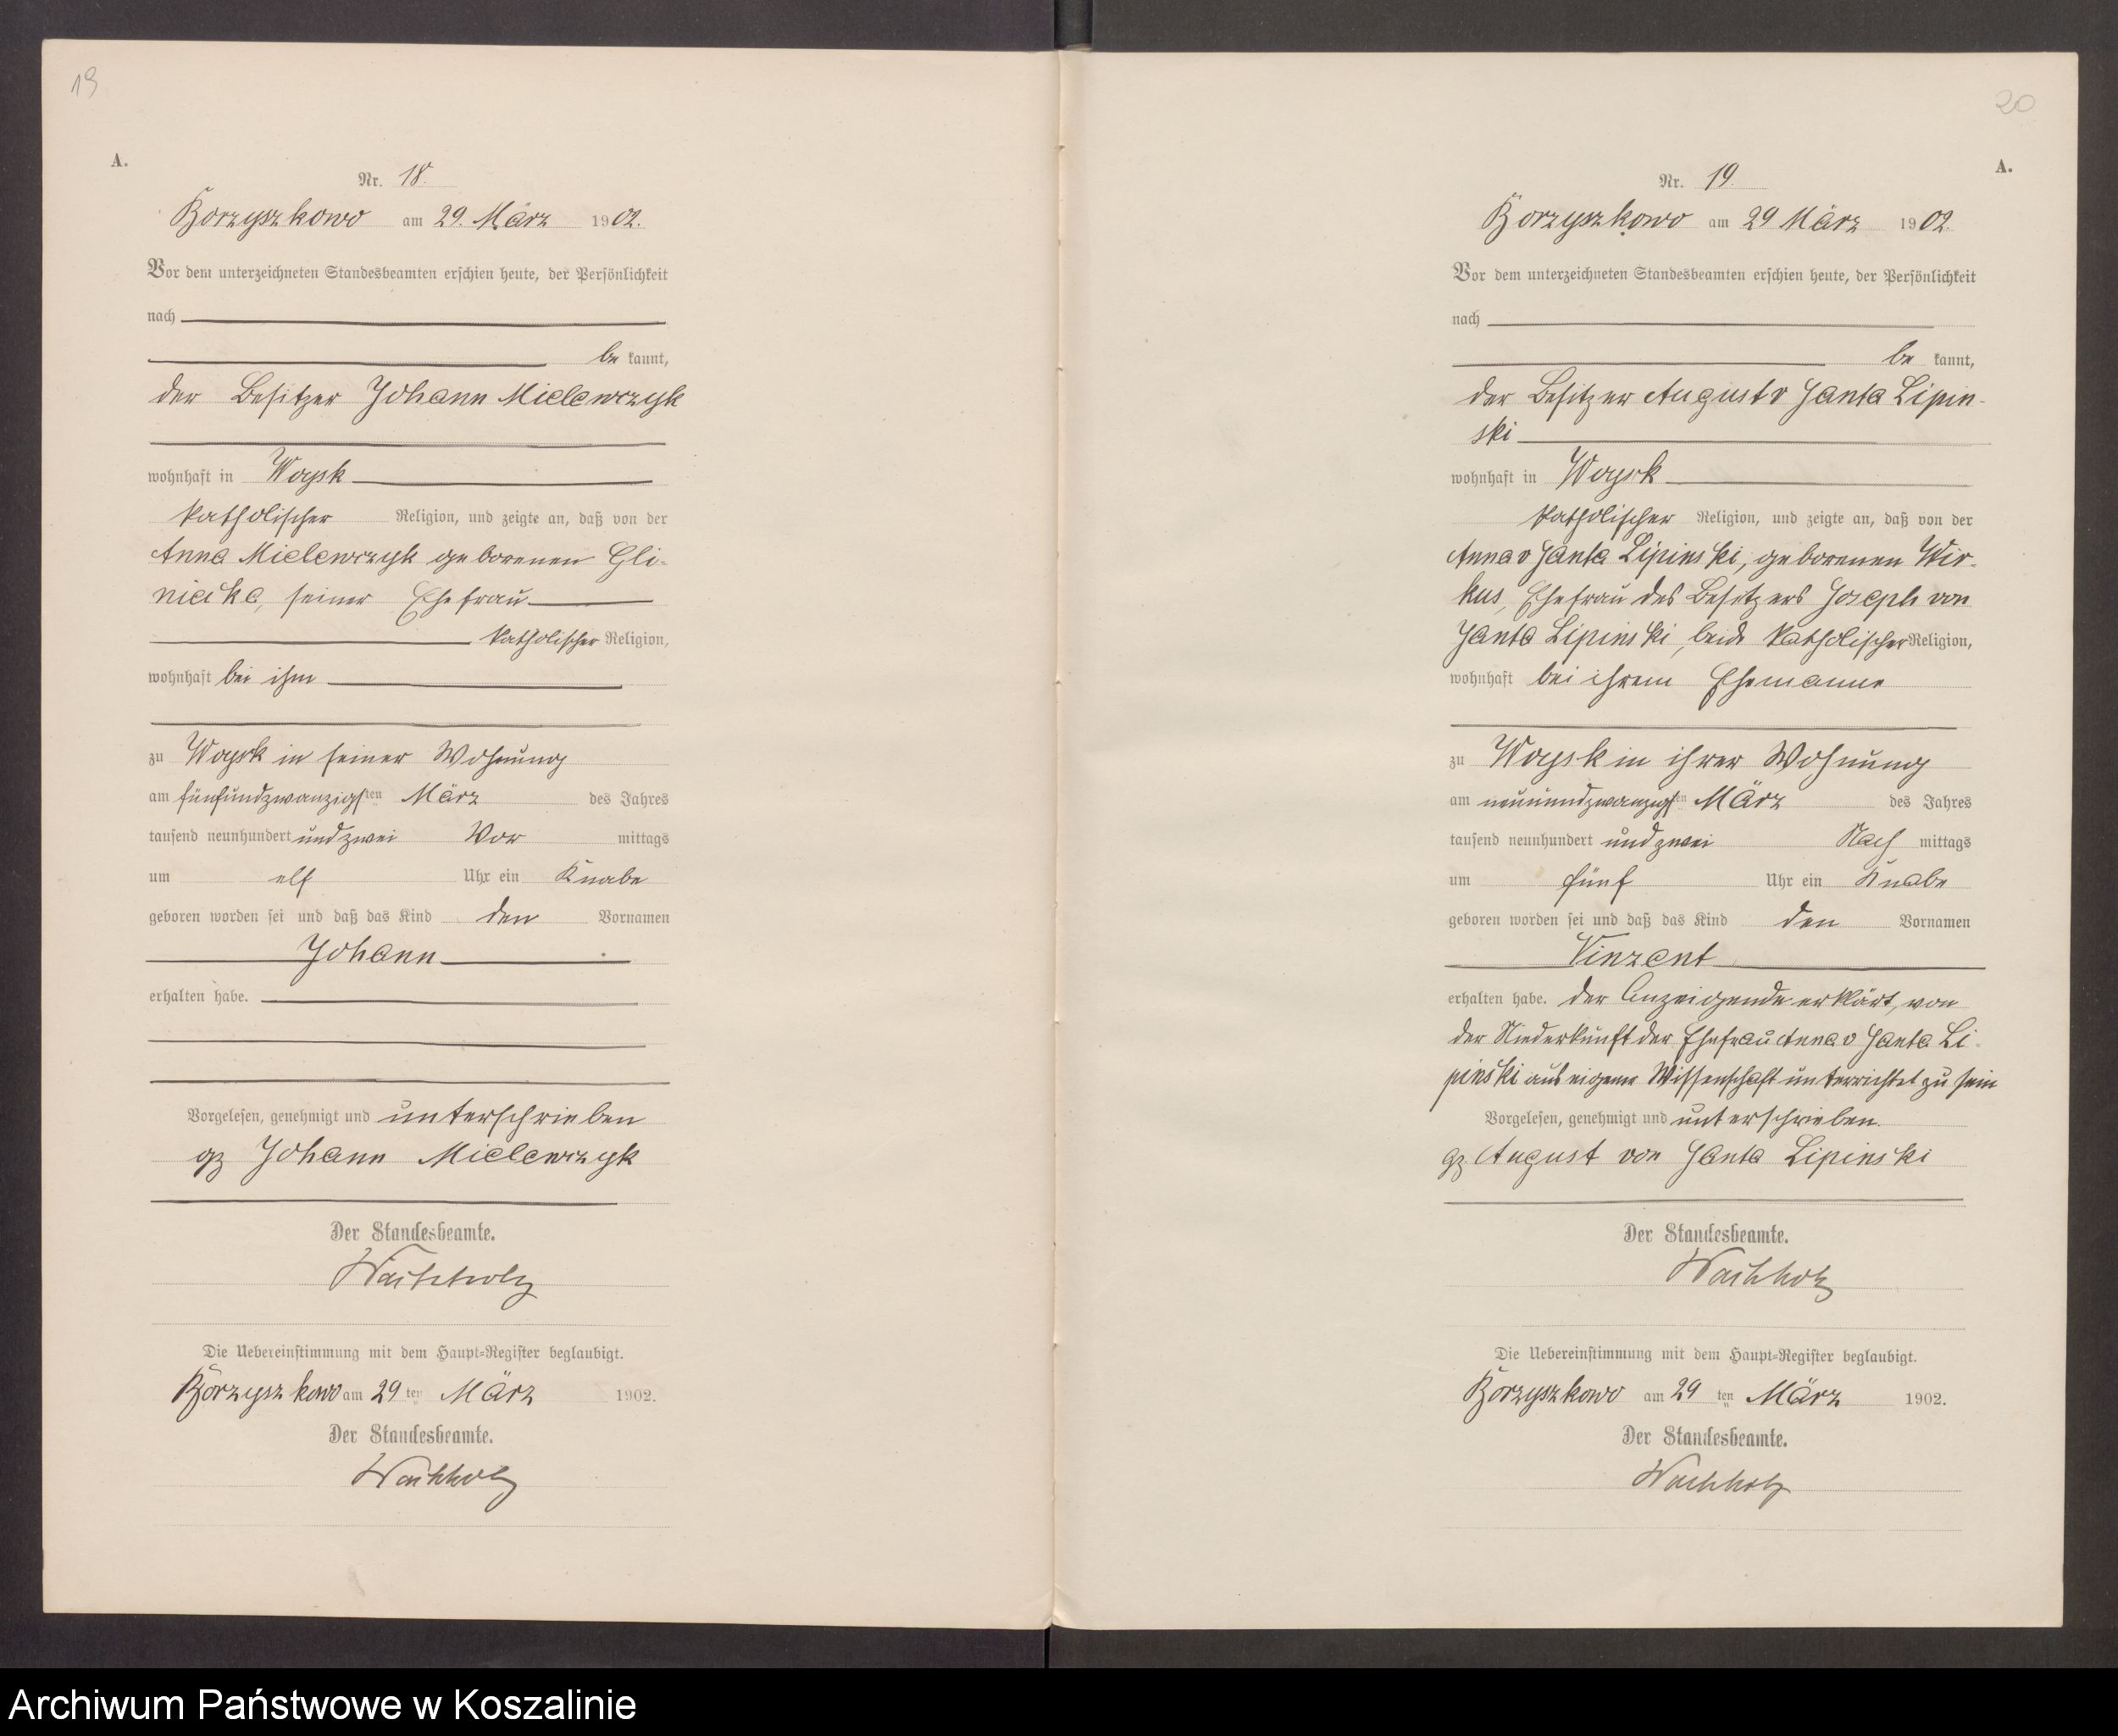 19
A.
Nr. 18.
Borzyszkowo am 29. März 1902.
Vor dem unterzeichneten Standesbeamten erschien heute, der Persönlichkeit
nach
be kannt,
der Besitzer Johann Mielewczyk
wohnhaft in Woysk
katholischer Religion, und zeigte an, daß von der
Anna Mielewczyk geborenen Gli-
, seiner Ehefrau
katholischer Religion,
wohnhaft bei ihm
zu Woysk in seiner Wohnung
am fünfundzwanzigsten März des Jahres
tausend neunhundert und zwei Vor mittags
um elf Uhr ein Knabe
geboren worden sei und daß das Kind den Vornamen
Johann
erhalten habe.
Vorgelesen, genehmigt und unterschrieben
gz Johann Mielewczyk
Der Standesbeamte.
Wachholz
Die Uebereinstimmung mit dem Haupt-Register beglaubigt.
Borzyszkowo am 29 ten März 1902.
Der Standesbeamte.
Wachholz
20
A.
Nr. 19.
Borzyszkowo am 29 März 1902.
Vor dem unterzeichneten Standesbeamten erschien heute, der Persönlichkeit
nach
be kannt,
der Besitzer August v Janta Lipin-
ski
wohnhaft in Woysk
katholischer Religion, und zeigte an, daß von der
Anna v Janta Lipinski, geborenen Wir-
kus, Ehefrau des Besitzers Joseph von
Janta Lipinski, beide katholischer Religion,
wohnhaft bei ihrem Ehemanne
zu Woysk in ihrer Wohnung
am neunundzwanzigsten März des Jahres
tausend neunhundert und zwei Nach mittags
um fünf Uhr ein Knabe
geboren worden sei und daß das Kind den Vornamen
Vinzent
erhalten habe. Der Anzeigende erklärt, von
der Niederkunft der Ehefrau Anna v Janta Li-
pinski aus eigener Wissenschaft unterrichtet zu sein
Vorgelesen, genehmigt und unterschrieben.
gz. August von Janta Lipinski
Der Standesbeamte.
Wachholz
Die Uebereinstimmung mit dem Haupt-Register beglaubigt.
Borzyszkowo am 29 ten März 1902.
Der Standesbeamte.
Wachholz
Archiwum Państwowe w Koszalinie